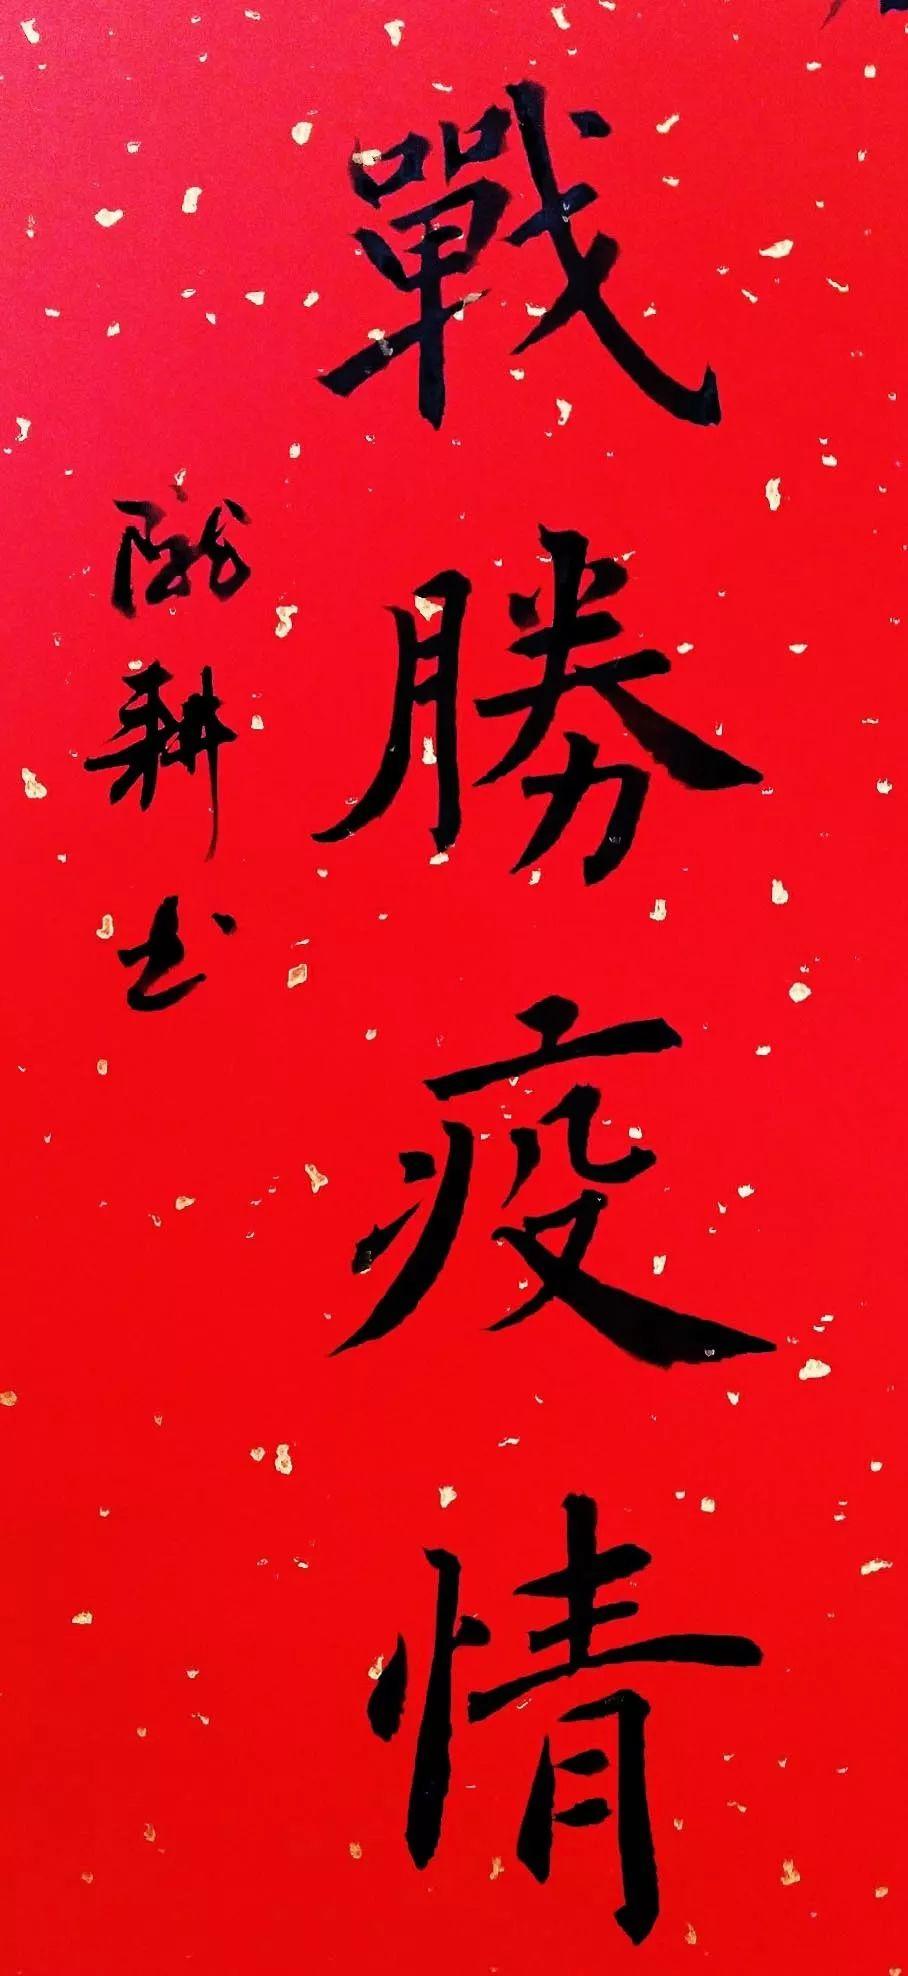 戰勝疫情
陇耕书